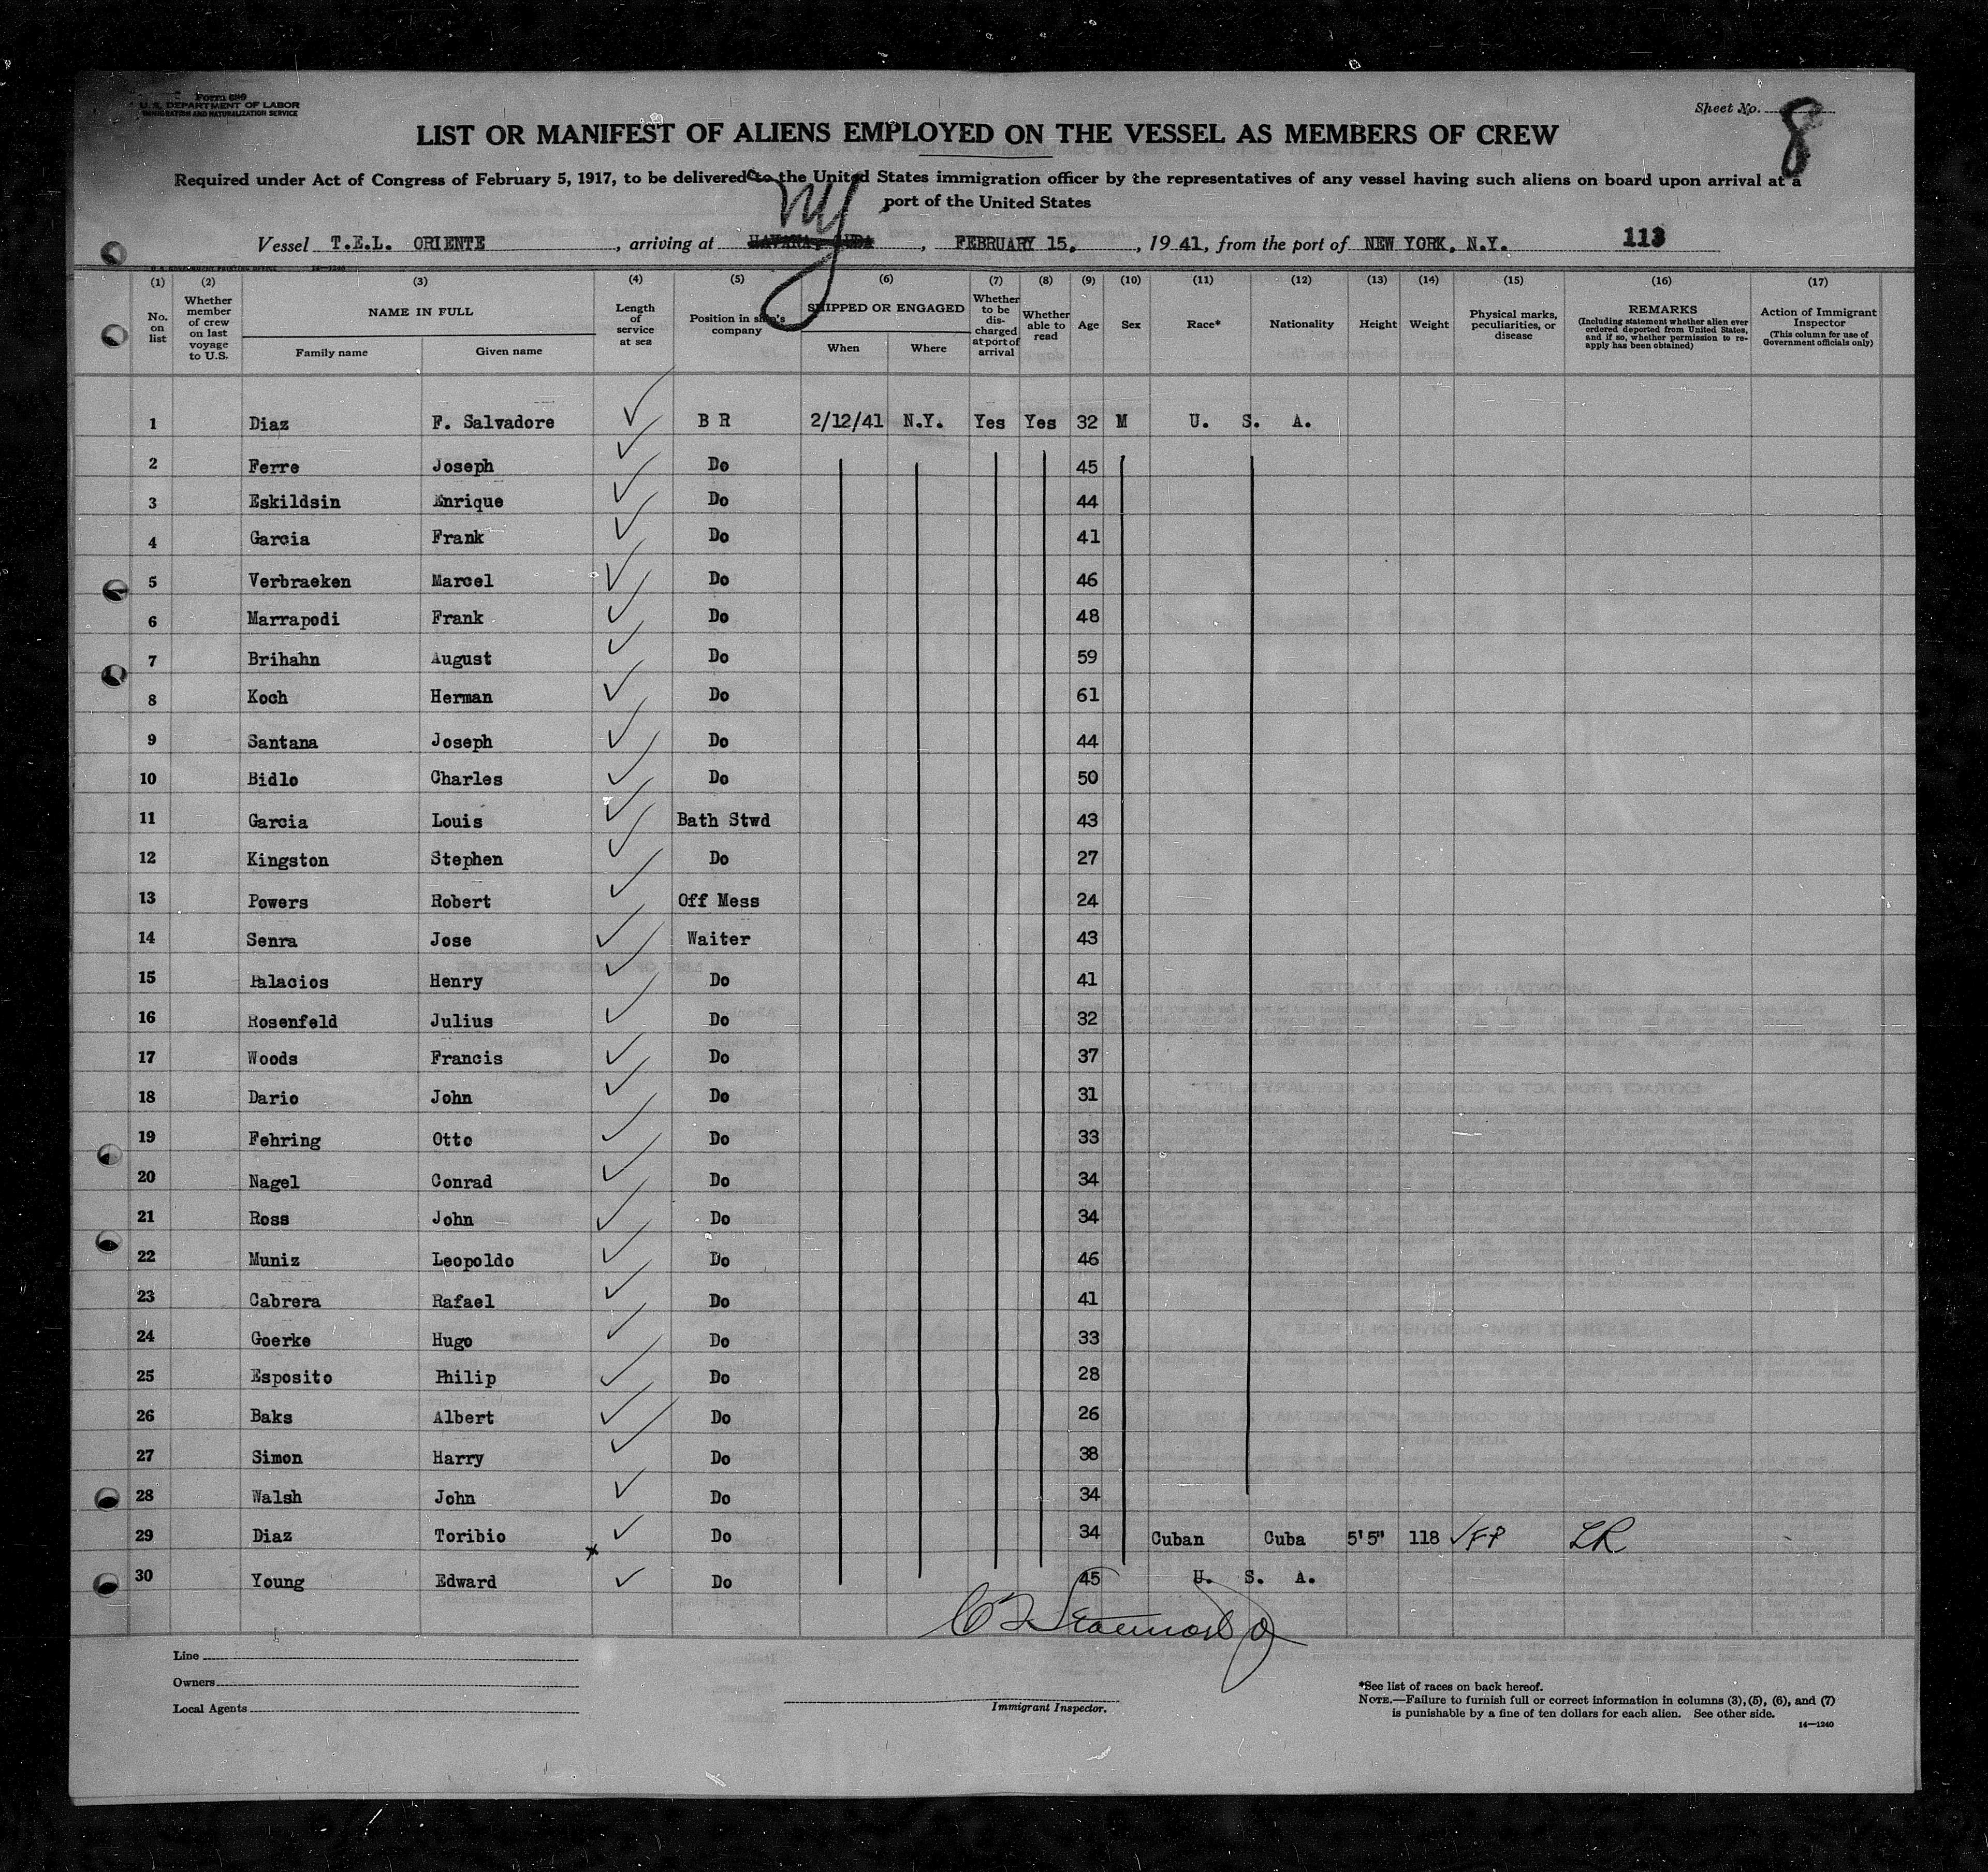 Form 689
U. S. DEPARTMENT OF LABOR
IMMIGRATION AND NATURALIZATION SERVICE
Sheet No. 8
LIST OR MANIFEST OF ALIENS EMPLOYED ON THE VESSEL AS MEMBERS OF CREW
Required under Act of Congress of February 5, 1917, to be delivered to the United States immigration officer by the representatives of any vessel having such aliens on board upon arrival at a
port of the United States
NY
Vessel T.E.L. ORIENTE, arriving at HAVANA, CUBA, FEBRUARY 15, 1941, from the port of NEW YORK, N.Y. 113
(1) (2) (3) (4) (5) (6) (7) (8) (9) (10) (11) (12) (13) (14) (15) (16) (17)
No. on list
Whether member of crew on last voyage to U.S.
NAME IN FULL
Family name Given name
Length of service at sea
Position in ship's company
SHIPPED OR ENGAGED
When Where
Whether to be discharged at port of arrival
Whether able to read
Age
Sex
Race*
Nationality
Height
Weight
Physical marks, peculiarities, or disease
REMARKS
(Including statement whether alien ever ordered deported from United States, and if so, whether permission to re-apply has been obtained)
Action of Immigrant Inspector
(This column for use of Government officials only)
1 Diaz F. Salvadore ✓ B R 2/12/41 N.Y. Yes Yes 32 M U. S. A.
2 Ferre Joseph ✓ Do 45
3 Eskildsin Enrique ✓ Do 44
4 Garcia Frank ✓ Do 41
5 Verbraeken Marcel ✓ Do 46
6 Marrapodi Frank ✓ Do 48
7 Brihahn August ✓ Do 59
8 Koch Herman ✓ Do 61
9 Santana Joseph ✓ Do 44
10 Bidlo Charles ✓ Do 50
11 Garcia Louis ✓ Bath Stwd 43
12 Kingston Stephen ✓ Do 27
13 Powers Robert ✓ Off Mess 24
14 Senra Jose ✓ Waiter 43
15 Palacios Henry ✓ Do 41
16 Rosenfeld Julius ✓ Do 32
17 Woods Francis ✓ Do 37
18 Dario John ✓ Do 31
19 Fehring Otto ✓ Do 33
20 Nagel Conrad ✓ Do 34
21 Ross John ✓ Do 34
22 Muniz Leopoldo ✓ Do 46
23 Cabrera Rafael ✓ Do 41
24 Goerke Hugo ✓ Do 33
25 Esposito Philip ✓ Do 28
26 Baks Albert ✓ Do 26
27 Simon Harry ✓ Do 38
28 Walsh John ✓ Do 34
29 Diaz Toribio ✓ Do 34 Cuban Cuba 5'5" 118 ✓FP LR
30 Young Edward ✓ Do 45 U. S. A.
Line
Owners
Local Agents
Immigrant Inspector.
*See list of races on back hereof.
NOTE.—Failure to furnish full or correct information in columns (3), (5), (6), and (7)
is punishable by a fine of ten dollars for each alien. See other side.
14—1240